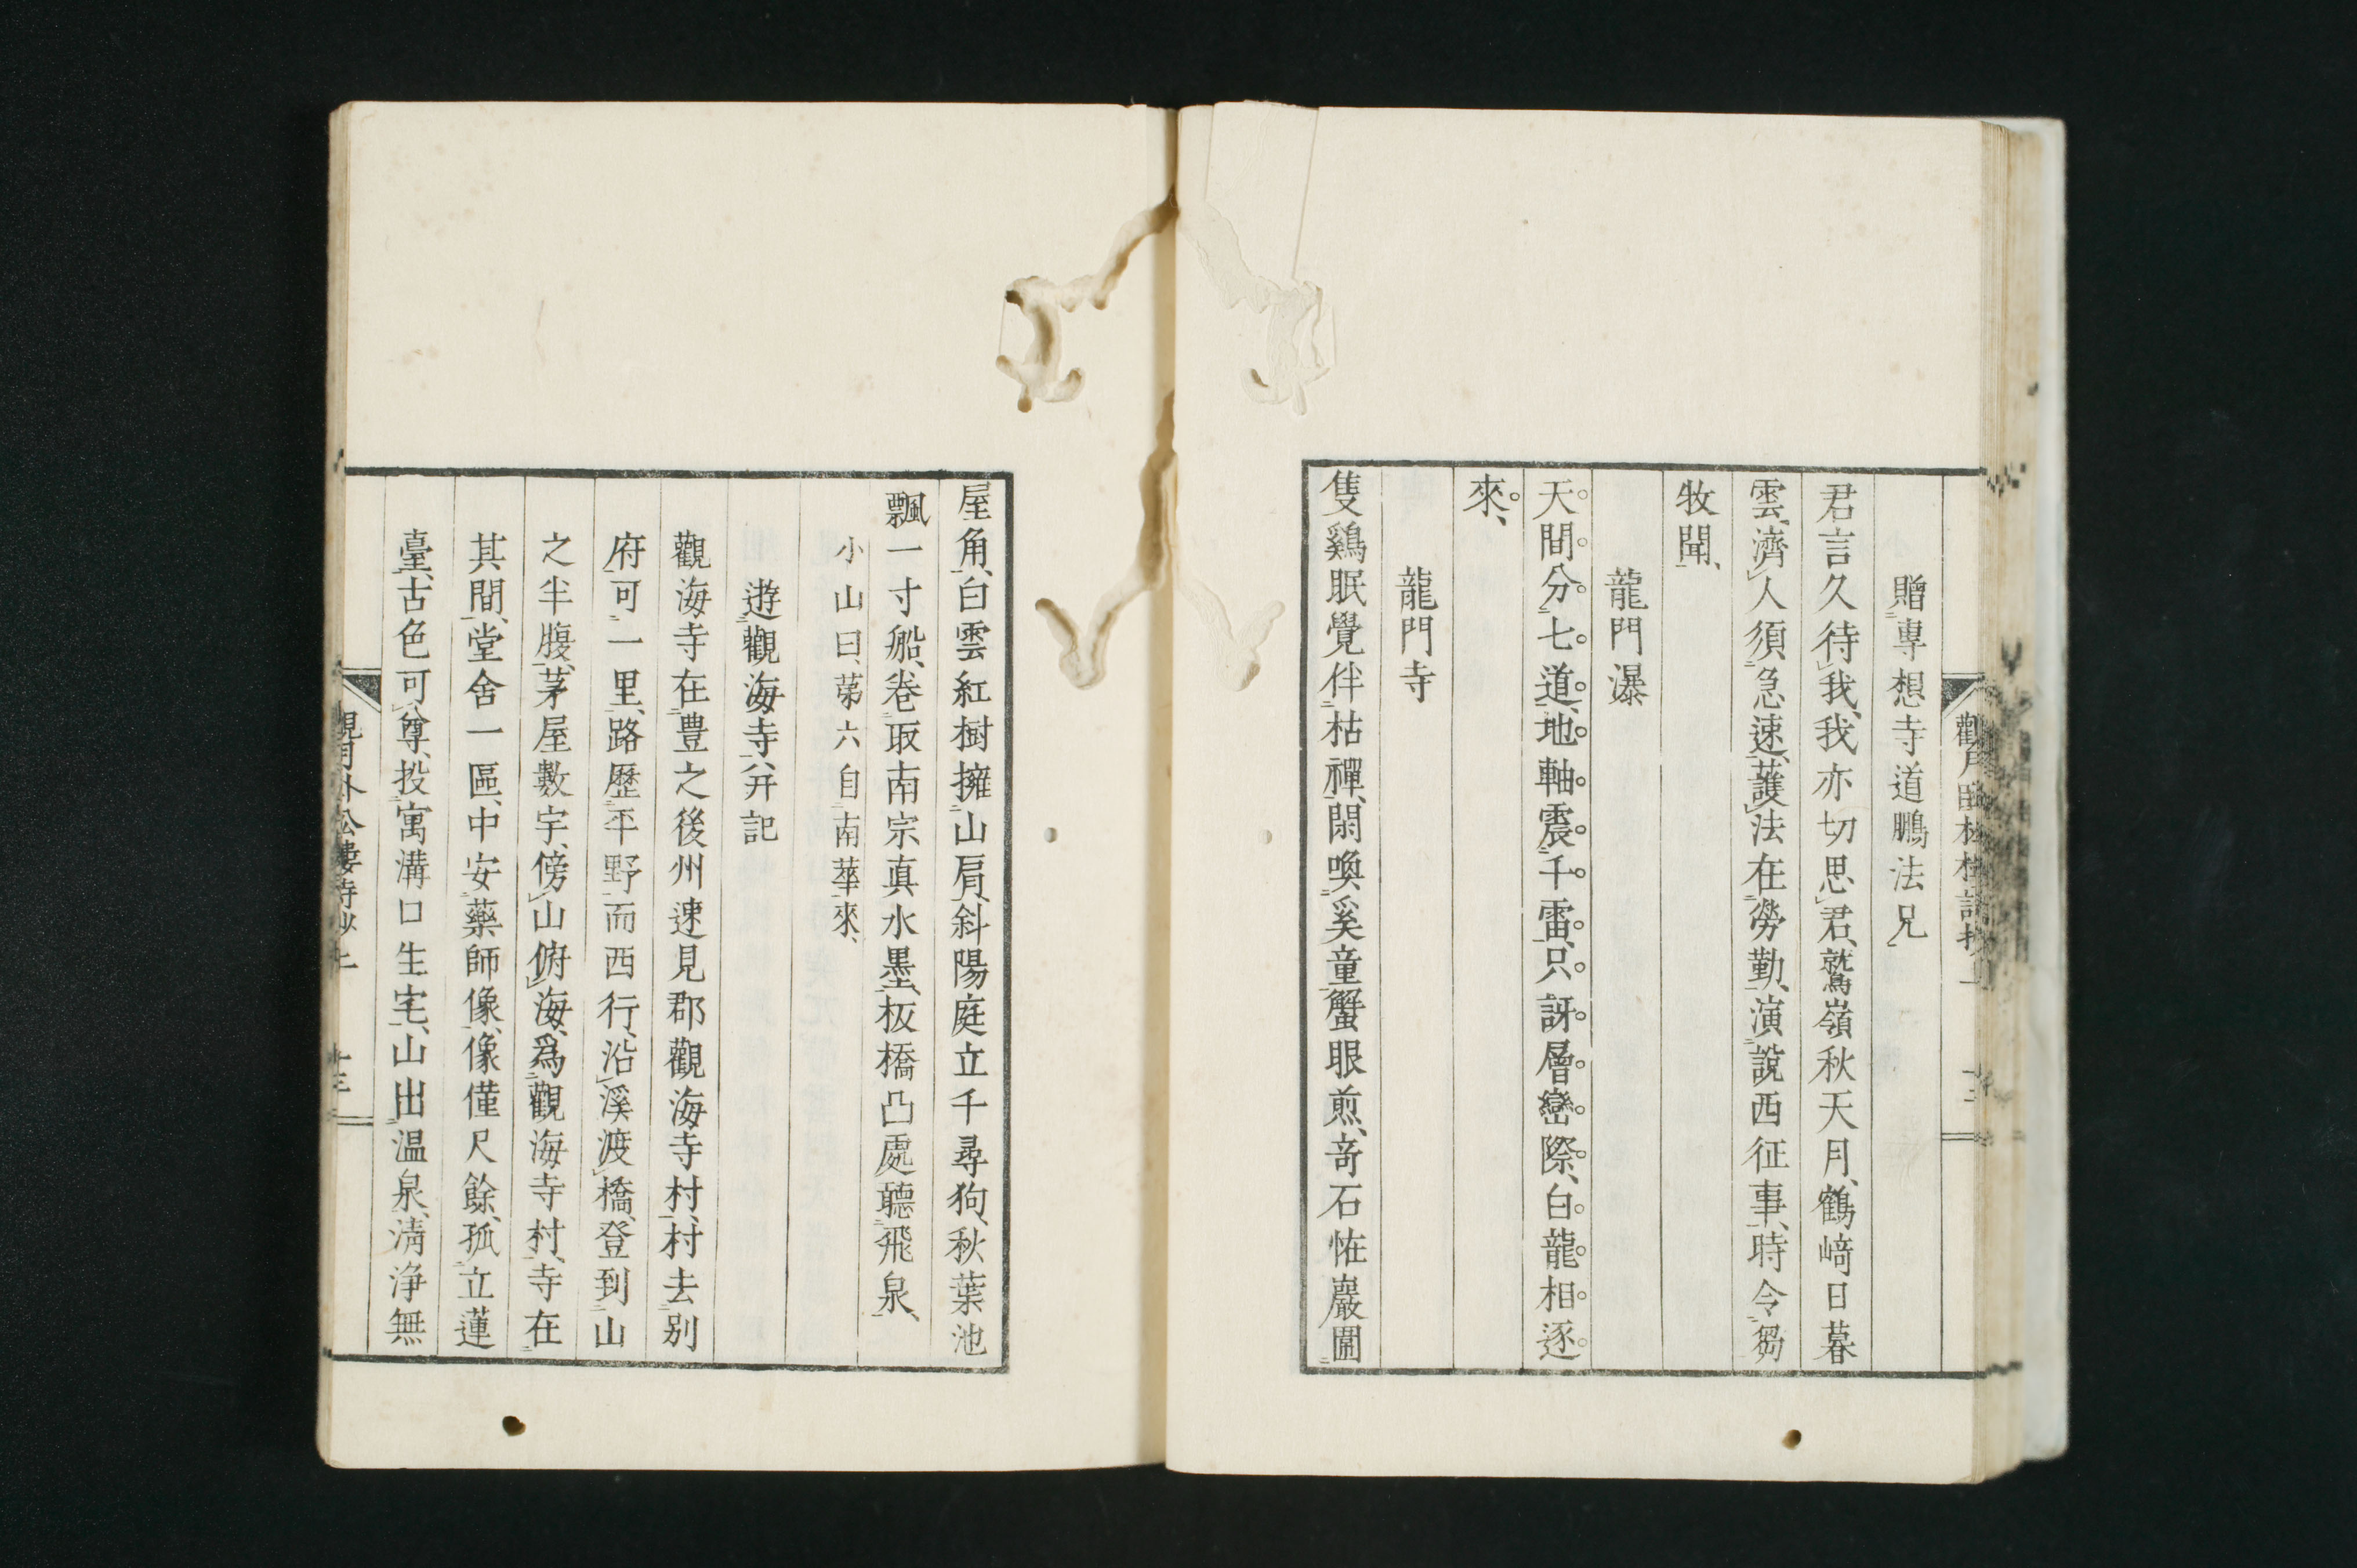 贈專想寺道鵬法兄
君言久待我、我亦切思君、鷲嶺秋天月、鶴﨑日暮
雲、濟人須急速、護法在勞勤、演說西征事、時令芻
牧聞、
龍門瀑
天間分七道、地軸震千雷、只訝層巒際、白龍相逐
來、
龍門寺
隻鷄眠覺伴枯禪、閑喚奚童蟹眼煎、奇石恠巖圍
屋角、白雲紅樹擁山肩、斜陽庭立千尋狗、秋葉池
飄一寸船、卷取南宗真水墨、板橋凸處聽飛泉、
小山曰、苐六自南華來、
遊觀海寺、并記
觀海寺在豊之後州速見郡觀海寺村、村去別
府可一里、路歷平野而西行、沿溪渡橋、登到山
之半腹、茅屋數宇、傍山俯海、爲觀海寺村、寺在
其間、堂舍一區、中安藥師像、像僅尺餘、孤立蓮
臺、古色可尊、投寓溝口生宅、山出温泉、淸浄無